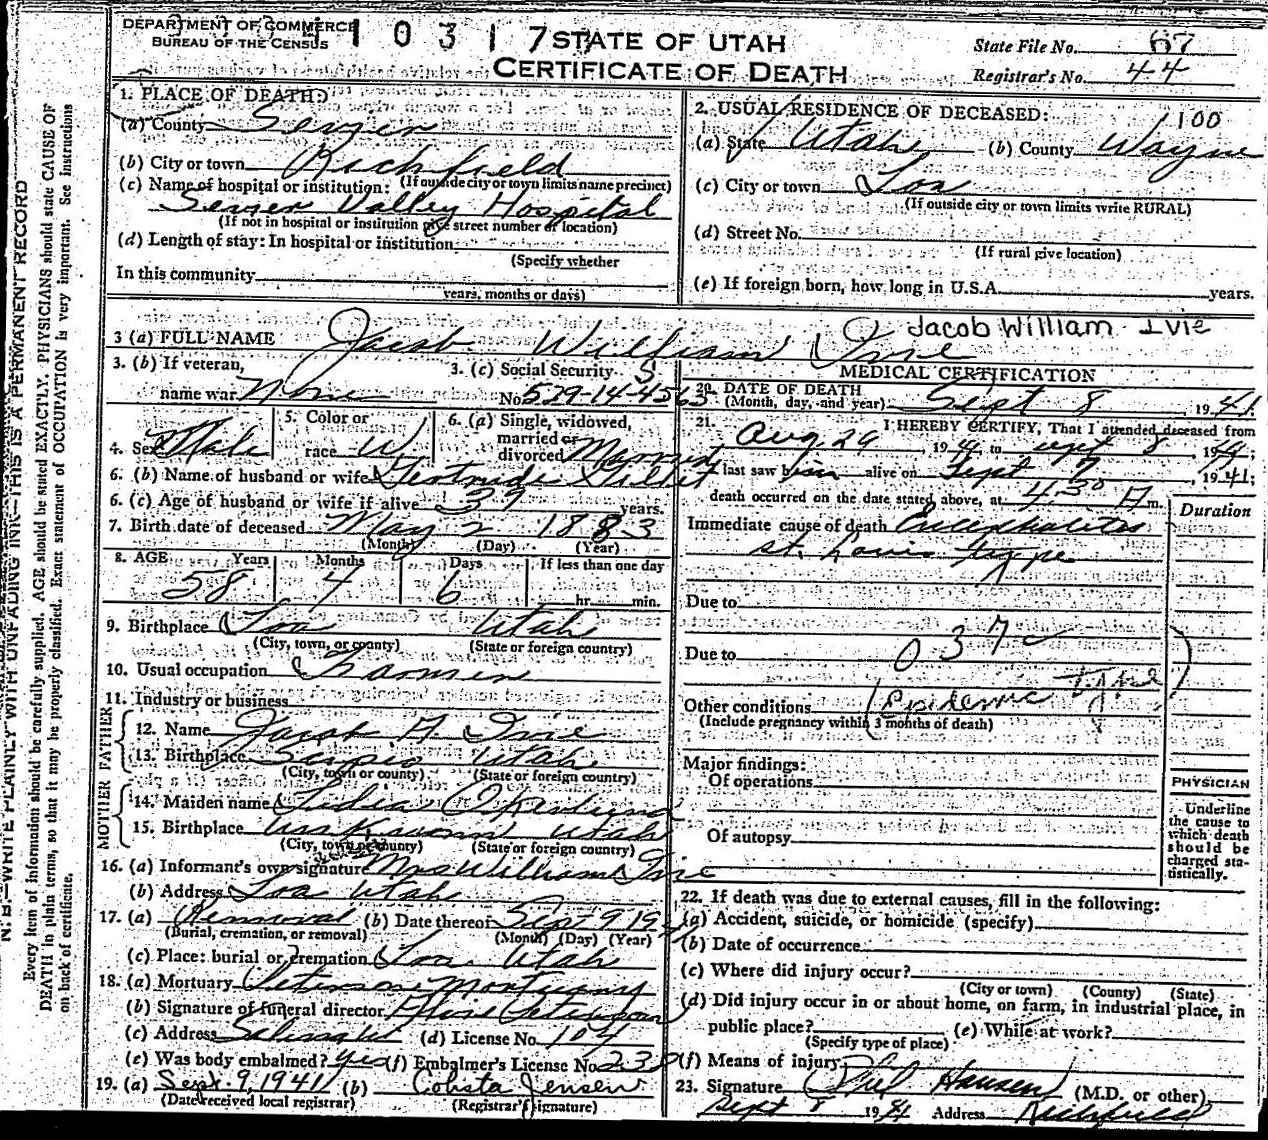 DEPARTMENT OF COMMERCE
BUREAU OF THE CENSUS
10317 STATE OF UTAH
CERTIFICATE OF DEATH
State File No. 67
Registrar's No. 44
1. PLACE OF DEATH:
(a) County Sevier
(b) City or town Richfield
(If outside city or town limits name precinct)
(c) Name of hospital or institution:
Sevier Valley Hospital
(If not in hospital or institution give street number or location)
(d) Length of stay: In hospital or institution
(Specify whether
In this community
years, months or days)
2. USUAL RESIDENCE OF DECEASED:
100
(a) State Utah (b) County Wayne
(c) City or town Loa
(If outside city or town limits write RURAL)
(d) Street No.
(If rural give location)
(e) If foreign born, how long in U.S.A. years.
3 (a) FULL NAME Jacob William Ivie
Jacob William Ivie
3. (b) If veteran,
name war None
3. (c) Social Security
No. 529-14-4563
4. Sex Male
5. Color or
race W
6. (a) Single, widowed,
married or
divorced Married
6. (b) Name of husband or wife Gertrude
6. (c) Age of husband or wife if alive 39 years.
7. Birth date of deceased May 2 1883
(Month) (Day) (Year)
8. AGE Years Months Days If less than one day
58 4 6 hr. min.
9. Birthplace Loa Utah
(City, town, or county) (State or foreign country)
10. Usual occupation Farmer
11. Industry or business
FATHER
12. Name Jacob A Ivie
13. Birthplace Scipio Utah
(City, town or county) (State or foreign country)
MOTHER
14. Maiden name
15. Birthplace Unknown Utah
(City, town or county) (State or foreign country)
16. (a) Informant's own signature Mrs William Ivie
(b) Address Loa Utah
17. (a) Removal (b) Date thereof Sept 9 19
(Burial, cremation, or removal) (Month) (Day) (Year)
(c) Place: burial or cremation Loa Utah
18. (a) Mortuary Peterson Mortuary
(b) Signature of funeral director Peterson
(c) Address Salina Ut (d) License No. 104
(e) Was body embalmed? yes (f) Embalmer's License No. 230
19. (a) Sept. 9, 1941 (b) Jensen
(Date received local registrar) (Registrar's signature)
MEDICAL CERTIFICATION
20. DATE OF DEATH
(Month, day, and year) Sept 8 1941
21. I HEREBY CERTIFY, That I attended deceased from
Aug. 29 1941 to Sept 8 1941;
I last saw him alive on Sept 7 1941;
death occurred on the date stated above, at 4:30 A m.
Duration
Immediate cause of death Encephalitis
St. Louis type
Due to
Due to 037
Other conditions (Epidemic Type
(Include pregnancy within 3 months of death)
Major findings:
Of operations
Of autopsy
PHYSICIAN
Underline
the cause to
which death
should be
charged sta-
tistically.
22. If death was due to external causes, fill in the following:
(a) Accident, suicide, or homicide (specify)
(b) Date of occurrence
(c) Where did injury occur?
(City or town) (County) (State)
(d) Did injury occur in or about home, on farm, in industrial place, in
public place? (e) While at work?
(Specify type of place)
(f) Means of injury
23. Signature Hansen (M.D. or other)
Sept 8 1941 Address Richfield
N. B.—WRITE PLAINLY WITH UNFADING INK—THIS IS A PERMANENT RECORD
Every item of information should be carefully supplied. AGE should be stated EXACTLY. PHYSICIANS should state CAUSE OF
DEATH in plain terms, so that it may be properly classified. Exact statement of OCCUPATION is very important. See instructions
on back of certificate.